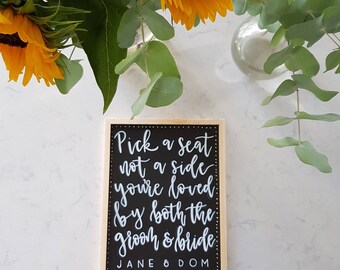 Pick a seat
not a side
you're loved
by both the
groom & bride
JANE & DOM